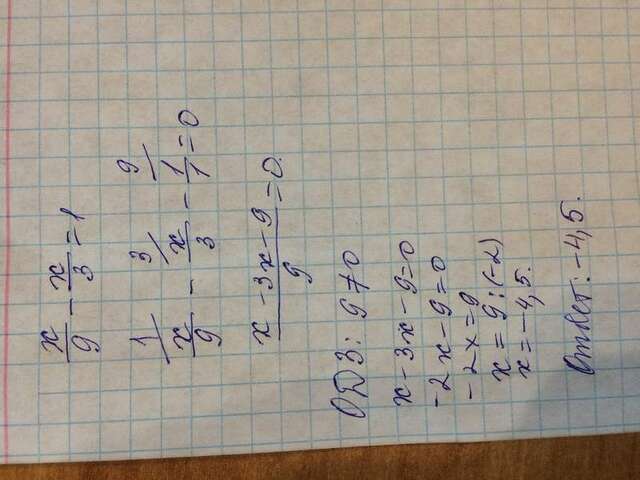 x/9 - x/3 = 1
1/ x/9 - 3/ x/3 - 9/ 1/1 = 0
(x - 3x - 9)/9 = 0.
ОДЗ: 9 ≠ 0
x - 3x - 9 = 0
-2x - 9 = 0
-2x = 9
x = 9 : (-2)
x = -4,5.
Ответ: -4,5.